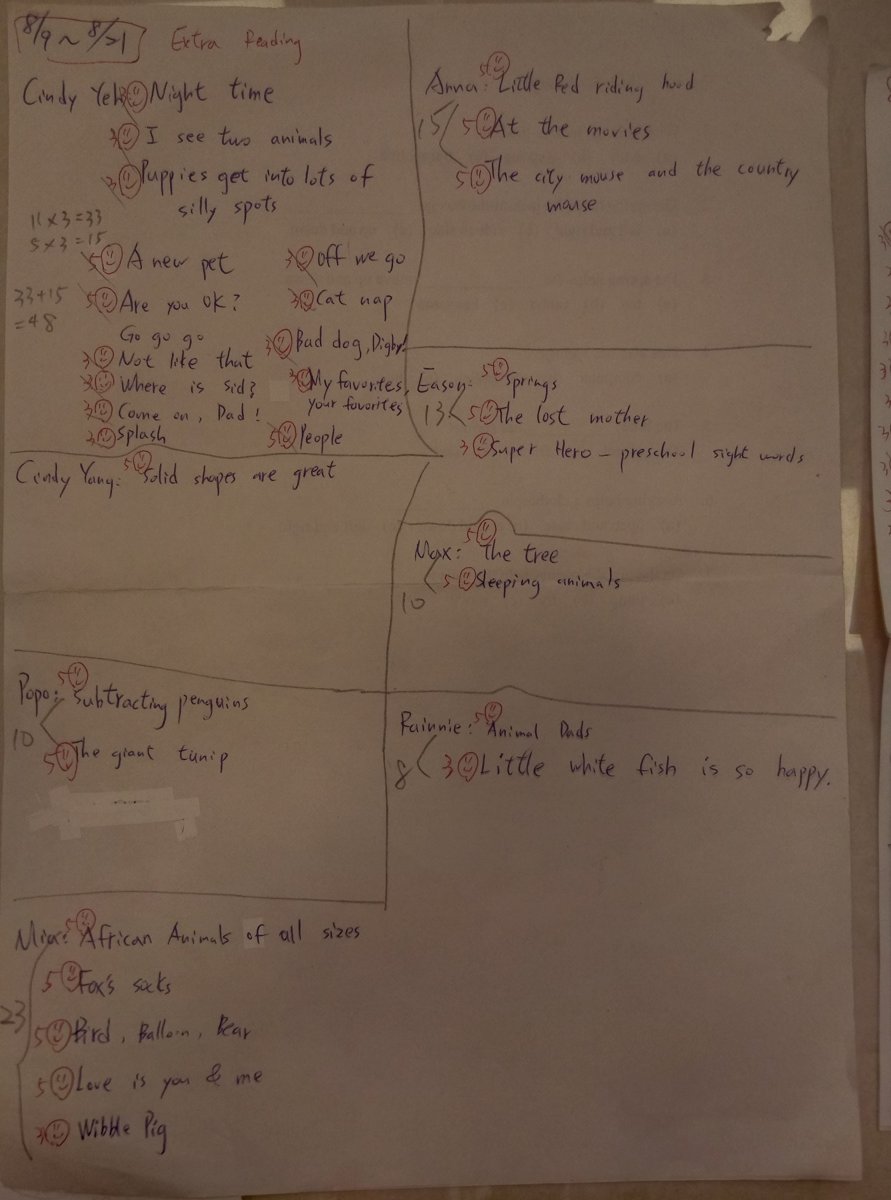 8/9 ~ 8/21 Extra Reading
Cindy Yeh: 3 Night time
3 I see two animals
3 Puppies get into lots of
silly spots
11 x 3 = 33
5 x 3 = 15
33 + 15
= 48
5 A new pet
5 Are you OK?
Go go go
3 Not like that
3 Where is sid?
3 Come on, Dad!
3 Splash
3 Off we go
3 Cat nap
3 Bad dog, Digby!
3 My favorites,
your favorites
5 People
Anna: 5 Little Red riding hood
15 5 At the movies
5 The city mouse and the country
mouse
Eason: 5 Springs
13 5 The lost mother
3 Super Hero – preschool sight words
Cindy Yang: 5 Solid shapes are great
Max: 5 The tree
5 Sleeping animals
10
Popo: 5 Subtracting penguins
10
5 The giant tunip
Rainnie: 5 Animal Dads
8 3 Little white fish is so happy.
Mia: 5 African Animals of all sizes
5 Fox's socks
23 5 Bird, Balloon, Bear
5 Love is you & me
3 Wibble Pig